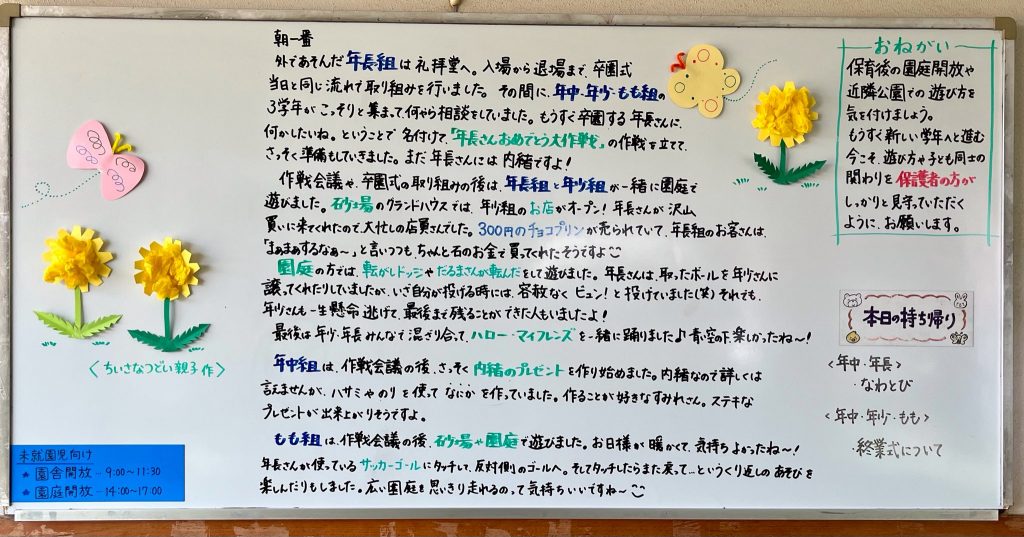 朝一番
外であそんだ年長組は礼拝堂へ。入場から退場まで、卒園式
当日と同じ流れで取り組みを行いました。その間に、年中・年少・もも組の
3学年がこっそりと集まって、何やら相談をしていました。もうすぐ卒園する年長さんに、
何かしたいね。ということで名付けて、「年長さんおめでとう大作戦」の作戦を立てて、
さっそく準備もしていきました。まだ年長さんには内緒ですよ！
作戦会議や、卒園式の取り組みの後は、年長組と年少組が一緒に園庭で
遊びました。砂場のグランドハウスでは、年少組のお店がオープン！年長さんが沢山
買いに来てくれたので、大忙しの店員さんでした。300円のチョコプリンが売られていて、年長組のお客さんは、
「まぁまぁするなぁ〜」と言いつつも、ちゃんと石のお金で買ってくれたそうですよ
園庭の方では、転がしドッジやだるまさんが転んだをして遊びました。年長さんは、取ったボールを年少さんに
譲ってくれたりしていましたが、いざ自分が投げる時には、容赦なくビュン！と投げていました(笑)それでも、
年少さんも一生懸命逃げて、最後まで残ることができた人もいましたよ！
最後は年少・年長みんなで混ざり合って、ハロー・マイフレンズを一緒に踊りました♪青空の下、楽しかったね〜！
年中組は、作戦会議の後、さっそく内緒のプレゼントを作り始めました。内緒なので詳しくは
言えませんが、ハサミやのりを使ってなにかを作っていました。作ることが好きなすみれさん。ステキな
プレゼントが出来上がりそうですよ。
もも組は、作戦会議の後、砂場や園庭で遊びました。お日様が暖かくて、気持ちよかったね〜！
年長さんが使っているサッカーゴールにタッチして、反対側のゴールへ。そしてタッチしたらまた戻って…というくり返しのあそびを
楽しんだりもしました。広い園庭を思いきり走れるのって気持ちいいですね〜
おねがい
保育後の園庭開放や
近隣公園での遊び方を
気を付けましょう。
もうすぐ新しい学年へと進む
今こそ、遊び方や子ども同士の
関わりを保護者の方が
しっかりと見守っていただく
ように、お願いします。
本日の持ち帰り
<年中・年長>
・なわとび
<年中・年少・もも>
・終業式について
<ちいさなつどい親子作>
未就園児向け
★園舎開放…9:00〜11:30
★園庭開放…14:00〜17:00